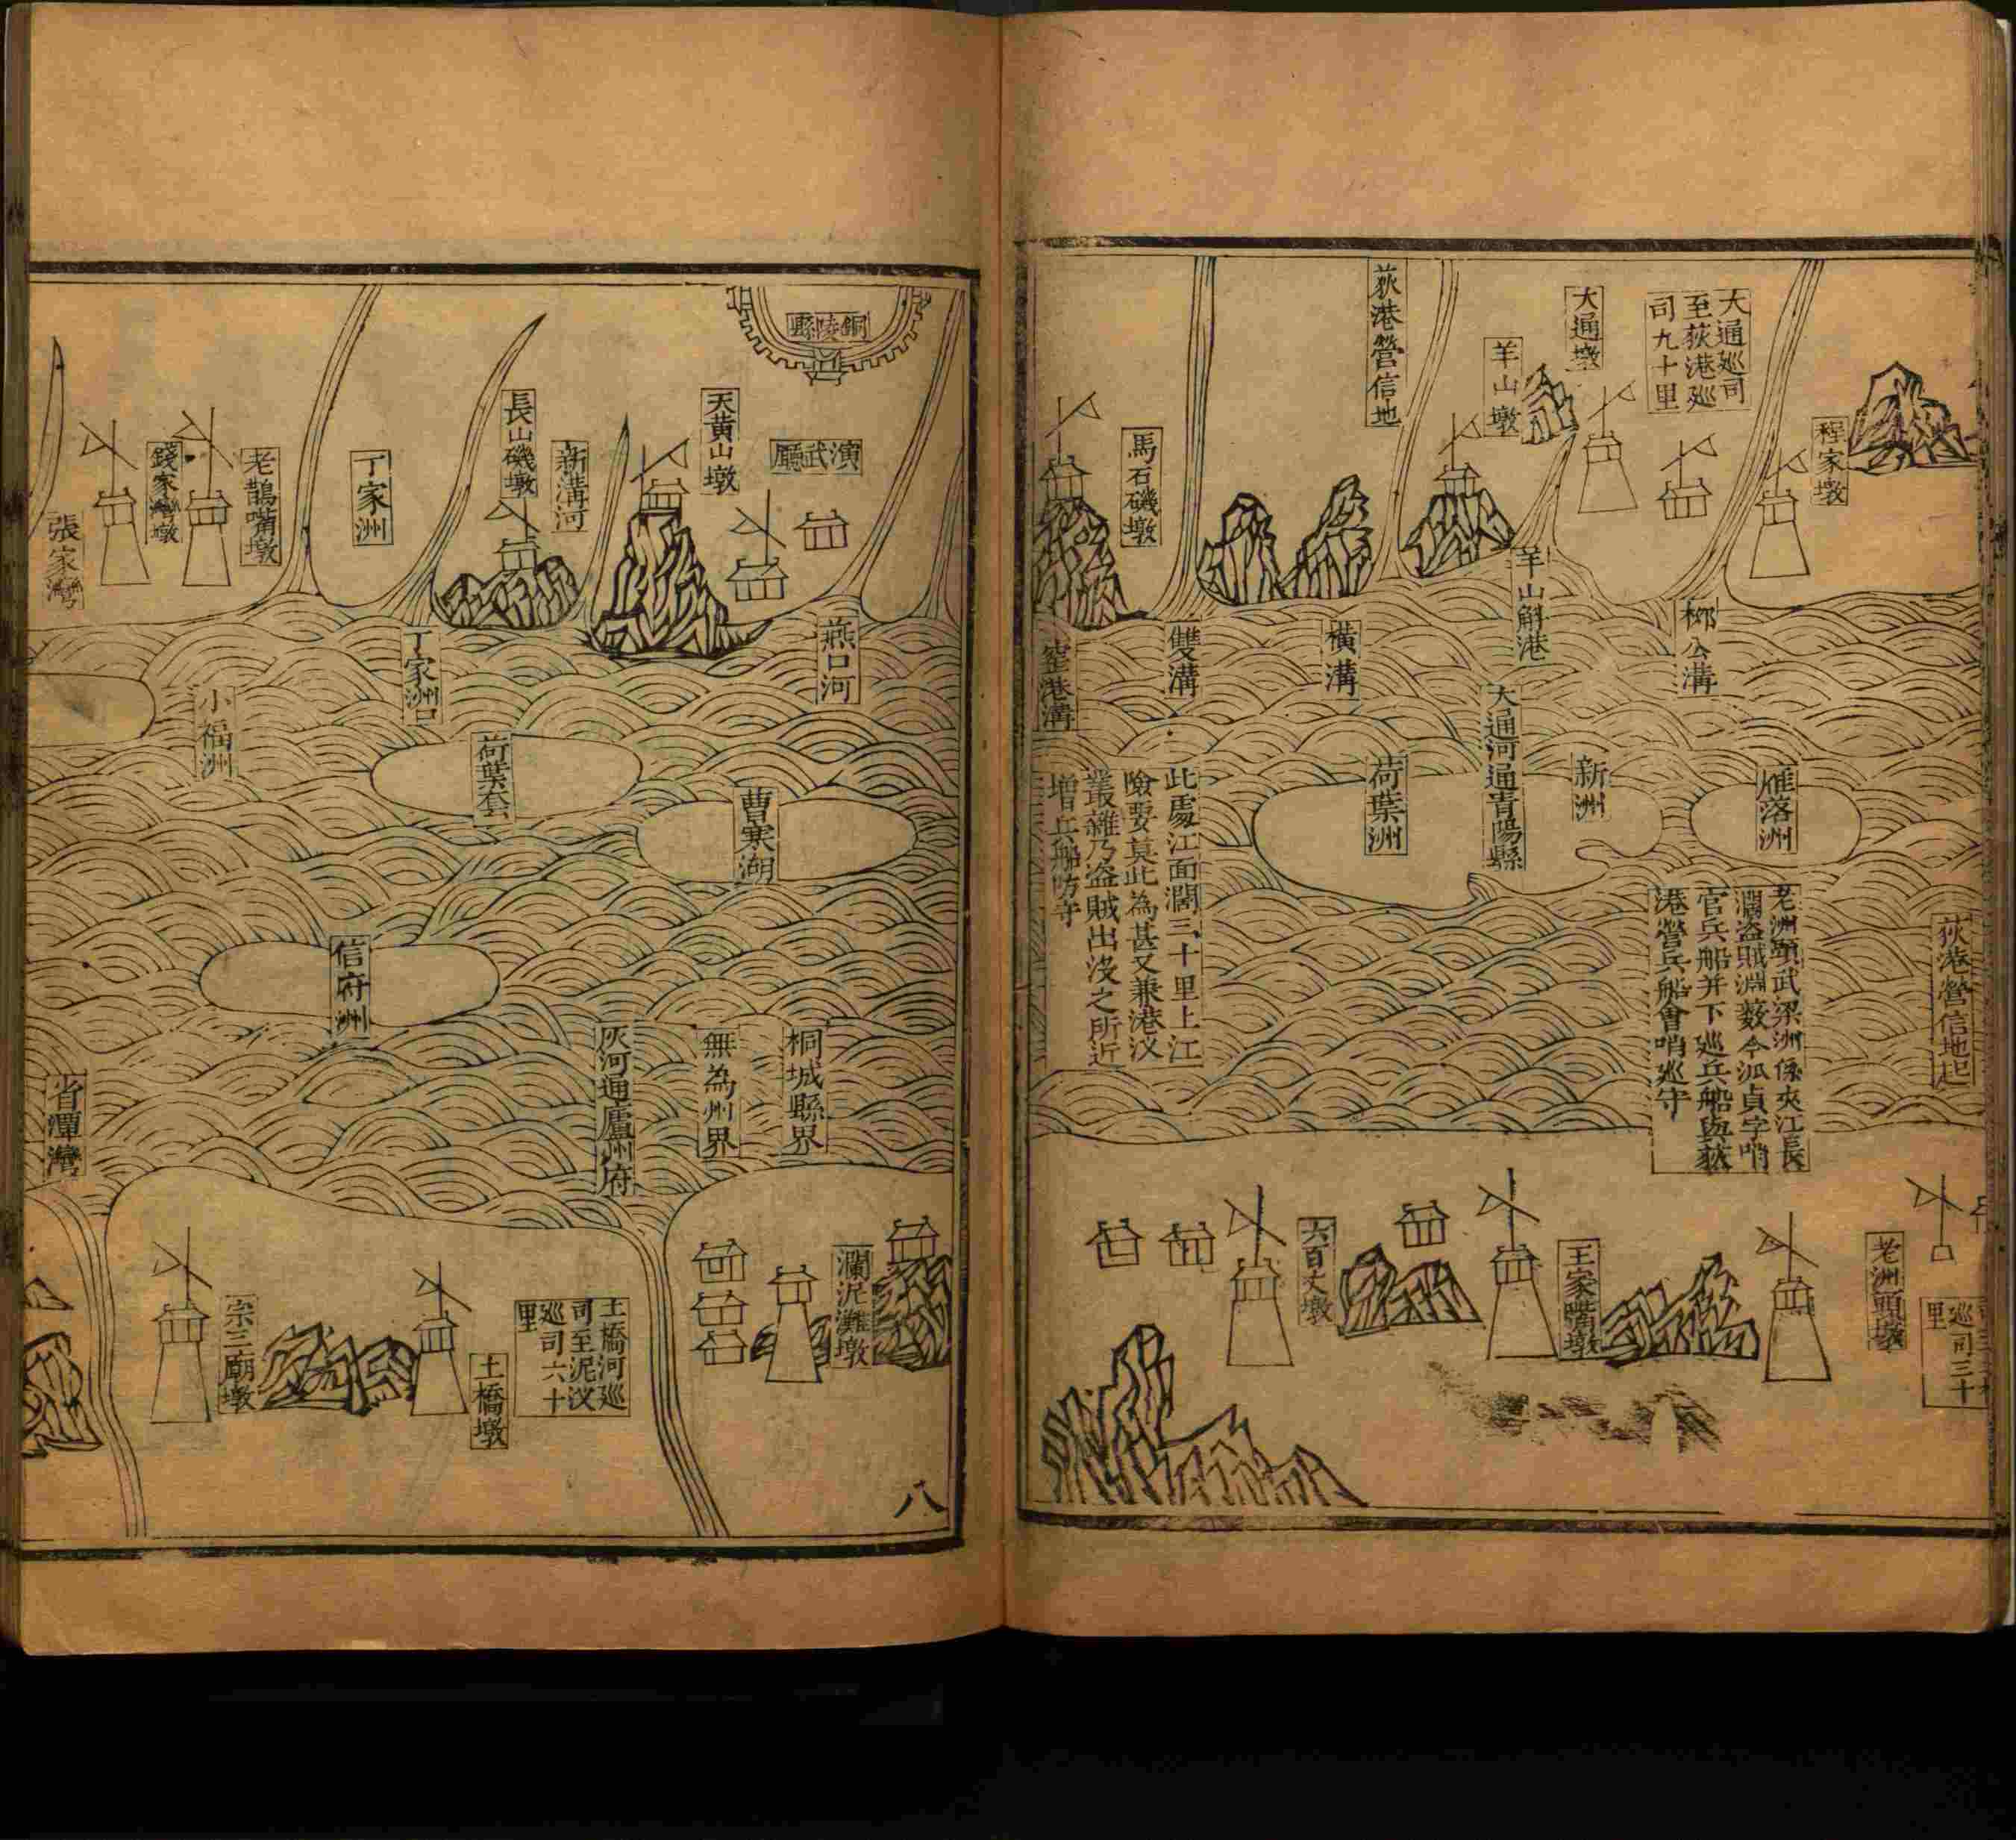 大通巡司
至荻港巡
司九十里
程家墩
大通墩
羊山墩
荻港營信地
馬石磯墩
栁公溝
羊山觧港
橫溝
雙溝
港溝
雁落洲
新洲
大通河通青陽縣
荷葉洲
此處江面濶三十里上江
險要莫此為甚又兼港汊
叢雜乃盗賊出沒之所近
增兵船防守
荻港營信地起
老洲頭武梁洲係夾江長
濶盗賊淵薮今派貞字哨
官兵船并下巡兵船與荻
港營兵船會哨巡守
老洲頭墩
巡司三十
里
王家嘴墩
六百丈墩
銅陵縣
演武廳
天黄山墩
新溝河
長山磯墩
丁家洲
老鵲嘴墩
錢家灣墩
張家灣
燕口河
丁家洲口
小福洲
荷葉套
曹寒湖
信府洲
桐城縣界
無為州界
灰河通廬州府
省潭灣
瀾泥灘墩
土橋河巡
司至泥汊
巡司六十
里
土橋墩
宗三廟墩
八